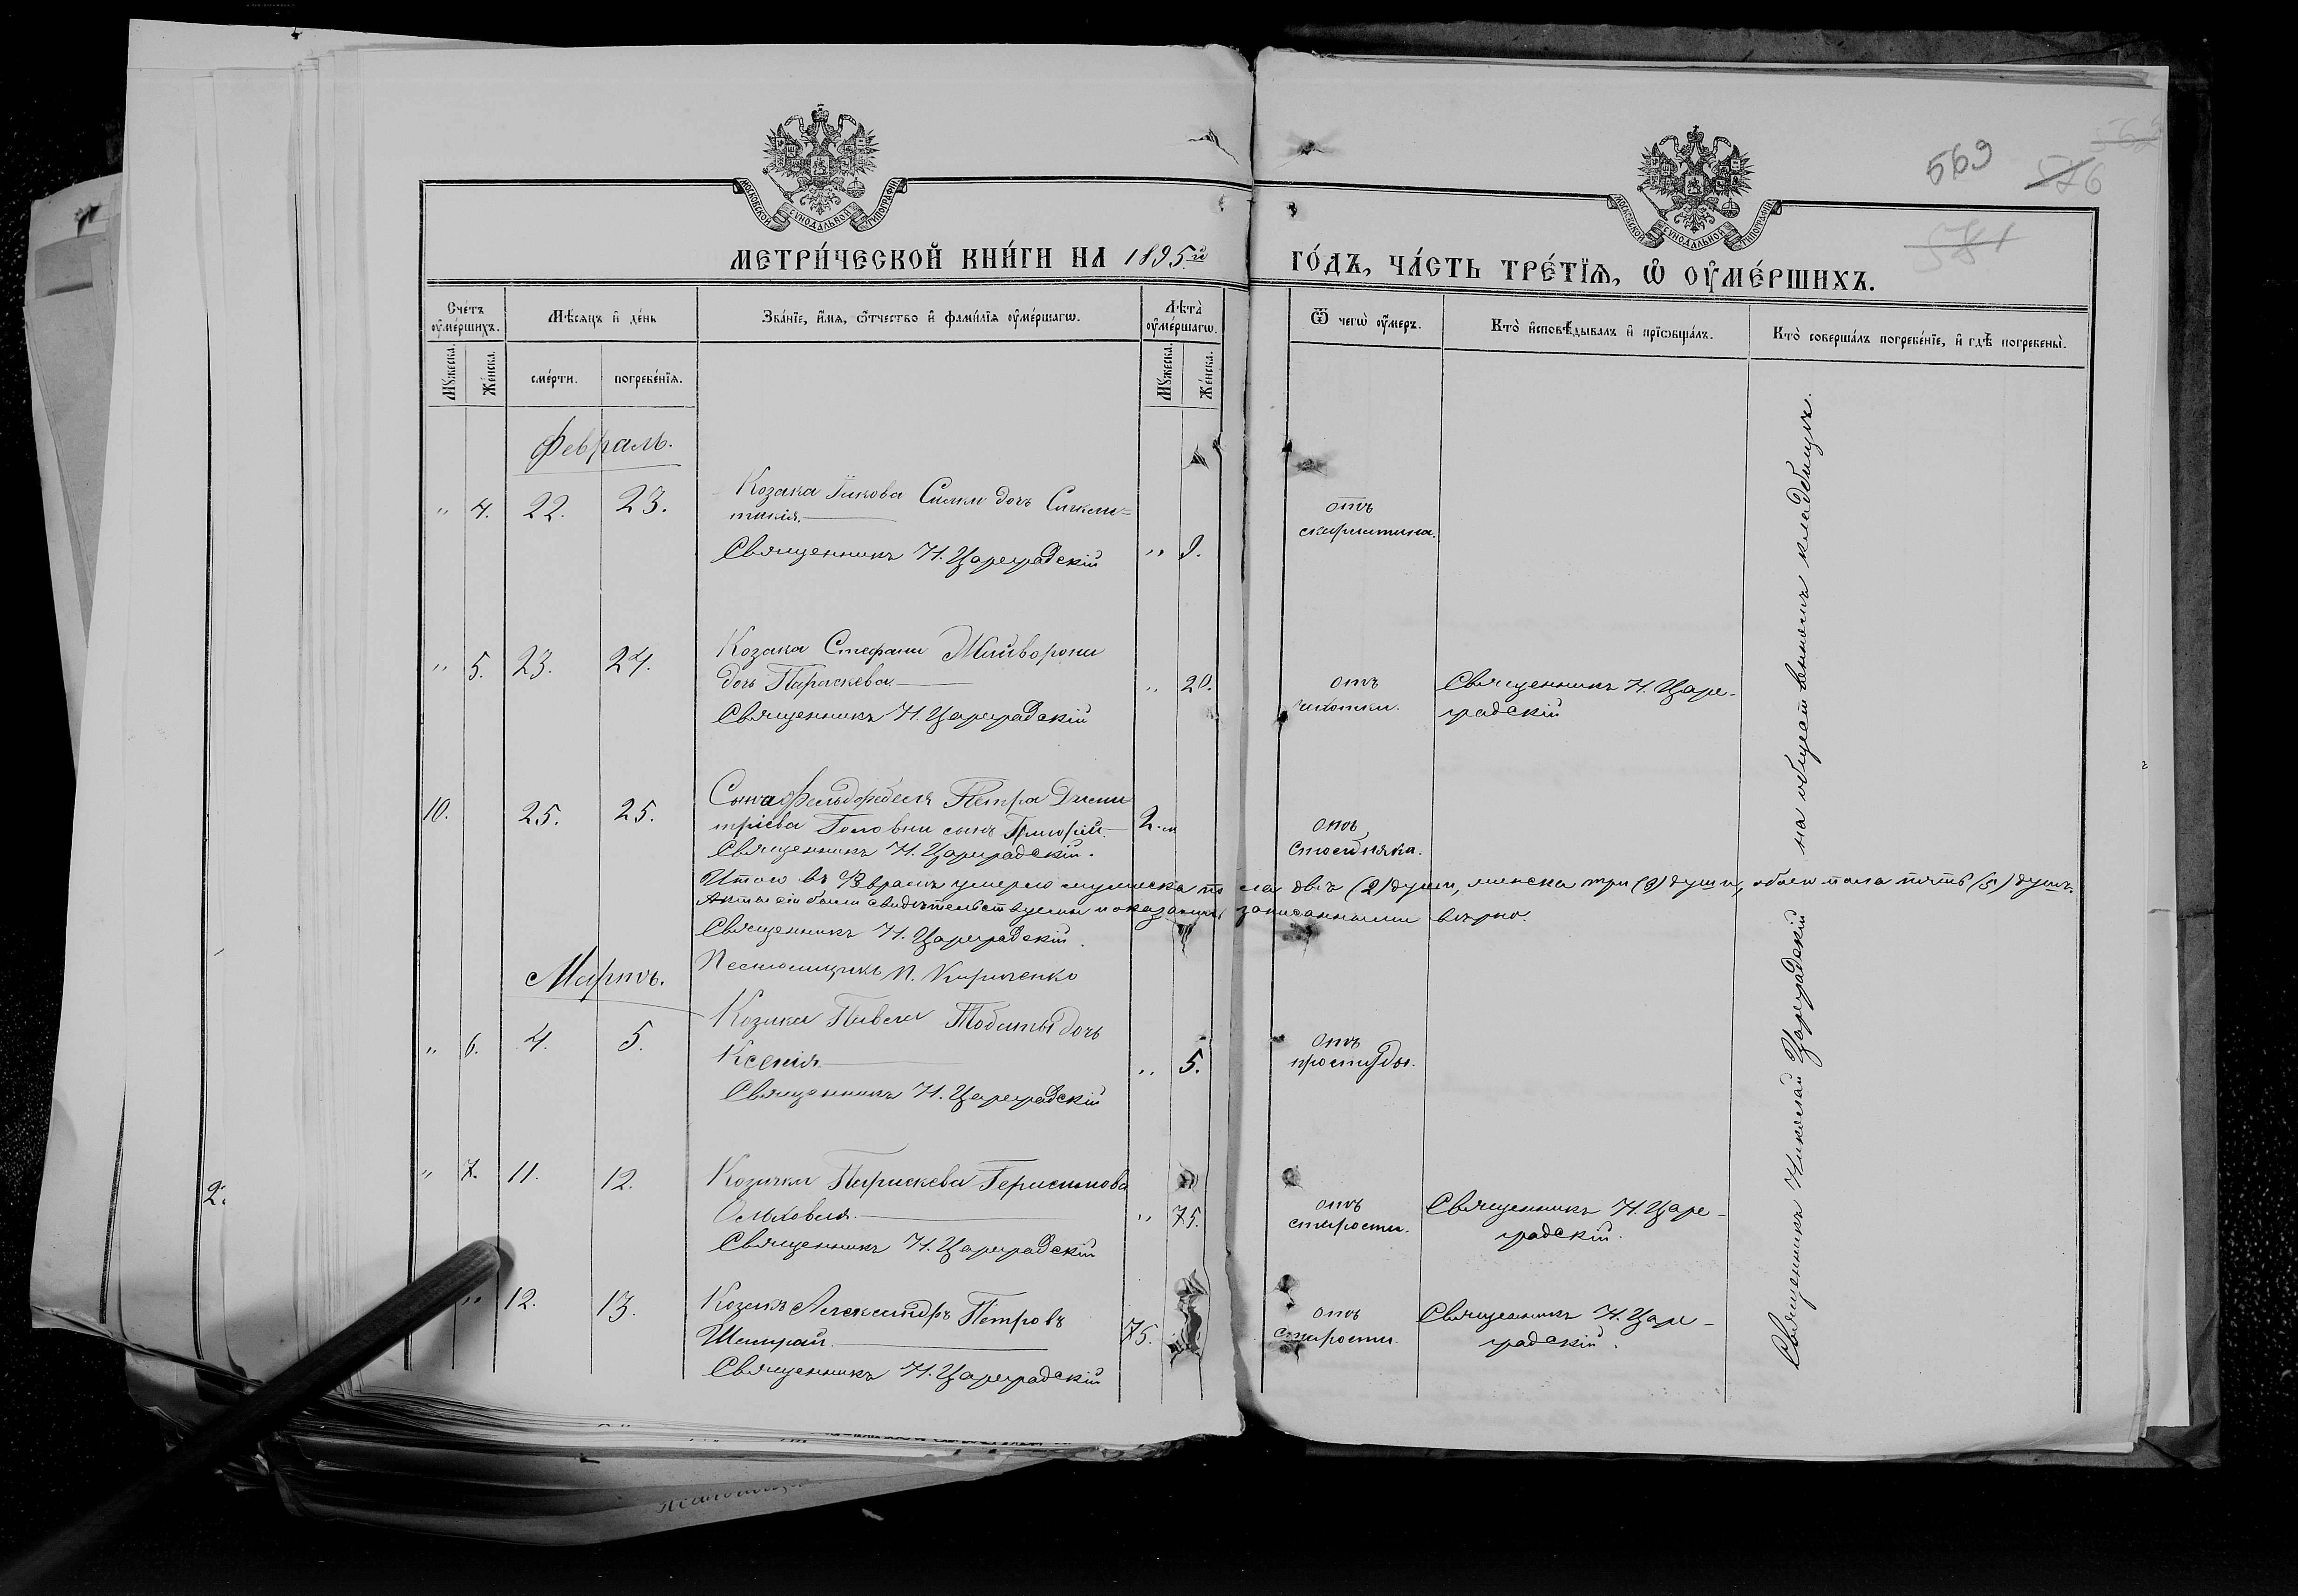 569
576
581
МОСКОВСКОЙ СѴНОДАЛЬНОЙ ТИПОГРАФІИ
МОСКОВСКОЙ СѴНОДАЛЬНОЙ ТИПОГРАФІИ
МЕТРИ́ЧЕСКОЙ КНИ́ГИ НА 1895й
ГО́ДЪ, ЧА́СТЬ ТРЕ́ТЇѦ, Ѡ҆ ОУ҆МЕ́РШИХЪ.
Сче́тъ оу҆ме́ршихъ.
Мѣ́сяцъ и҆ де́нь
Зва́нїе, и҆́мѧ, ѻ҆́тчество и҆ фами́лїѧ оу҆ме́ршагѡ.
Лѣ́та оу҆ме́ршагѡ.
Ѿ чегѡ̀ оу҆́меръ.
Кто̀ и҆сповѣ́дывалъ и҆ прїѡбща́лъ.
Кто̀ соверша́лъ погребе́нїе, и҆ гдѣ̀ погребены̀.
Мꙋ́жеска.
Же́нска.
сме́рти.
погребе́нїѧ.
Мꙋ́жеска.
Же́нска.
Февраль.
" 4. 22. 23.
Козака Якова Силки дочь Синкли=
тикія.
Священникъ Н. Цареградскій
" 9.
отъ
скарлатина.
" 5. 23. 24.
Козака Стефана Майвороки
дочь Параскева.
Священникъ Н. Цареградскій
" 20.
отъ
чахотки.
Священникъ Н. Царе-
градскій
10. 25. 25.
Сына Фельдфебеля Петра Дими
тріева Головни сынъ Григорій.
Священникъ Н. Цареградскій.
2.
отъ
столбняка.
Итого въ Февралѣ умерло мужеска по ла двѣ (2) души, женска три (3) души, обоего пола пять (5) душъ.
Акты сіи были свидѣтельствуемы и оказались записанными вѣрно
Священникъ Н. Цареградскій.
Псаломщикъ П. Кириченко
Мартъ.
" 6. 4. 5.
Козака Павла дочь
Ксенія
Священникъ Н. Цареградскій
" 5.
отъ
простуды.
" 7. 11. 12.
Козачка Параскева Герасимова
Ольховая.
Священникъ Н. Цареградскій
" 75.
отъ
старости.
Священникъ Н. Царе-
градскій.
" 12. 13.
Козакъ Александръ Петровъ
Шамрай.
Священникъ Н. Цареградскій
75.
отъ
старости.
Священникъ Н. Царе-
градскій.
Священникъ Николай Цареградскій на общественномъ кладбищѣ.
2.